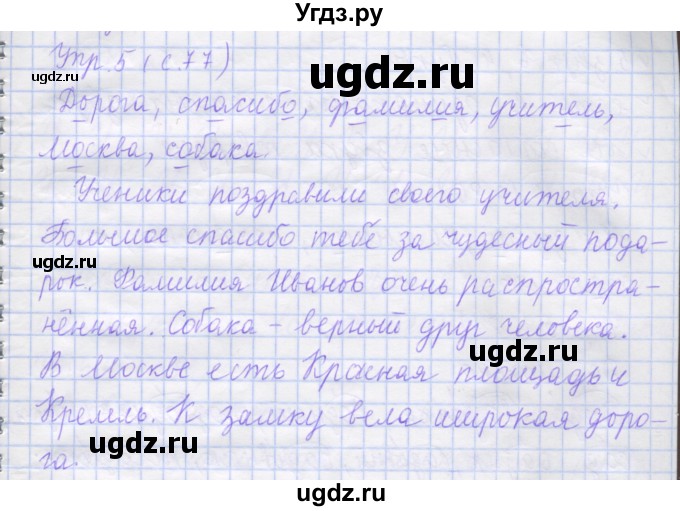 Угдз.ру
Упр. 5 (с. 77)
ugdz.ru
ugdz.ru
ugdz.ru
Дорога, спасибо, фамилия, учитель,
Москва, собака.
ugdz.ru
Ученики поздравили своего учителя.
Большое спасибо тебе за чудесный пода-
ugdz.ru
рок. Фамилия Иванов очень распростра-
ugdz.ru
нённая. Собака – верный друг человека.
ugdz.ru
В Москве есть Красная площадь и
Кремль. К замку вела широкая доро-
ugdz.ru
ugdz.ru
га.
ugdz.ru